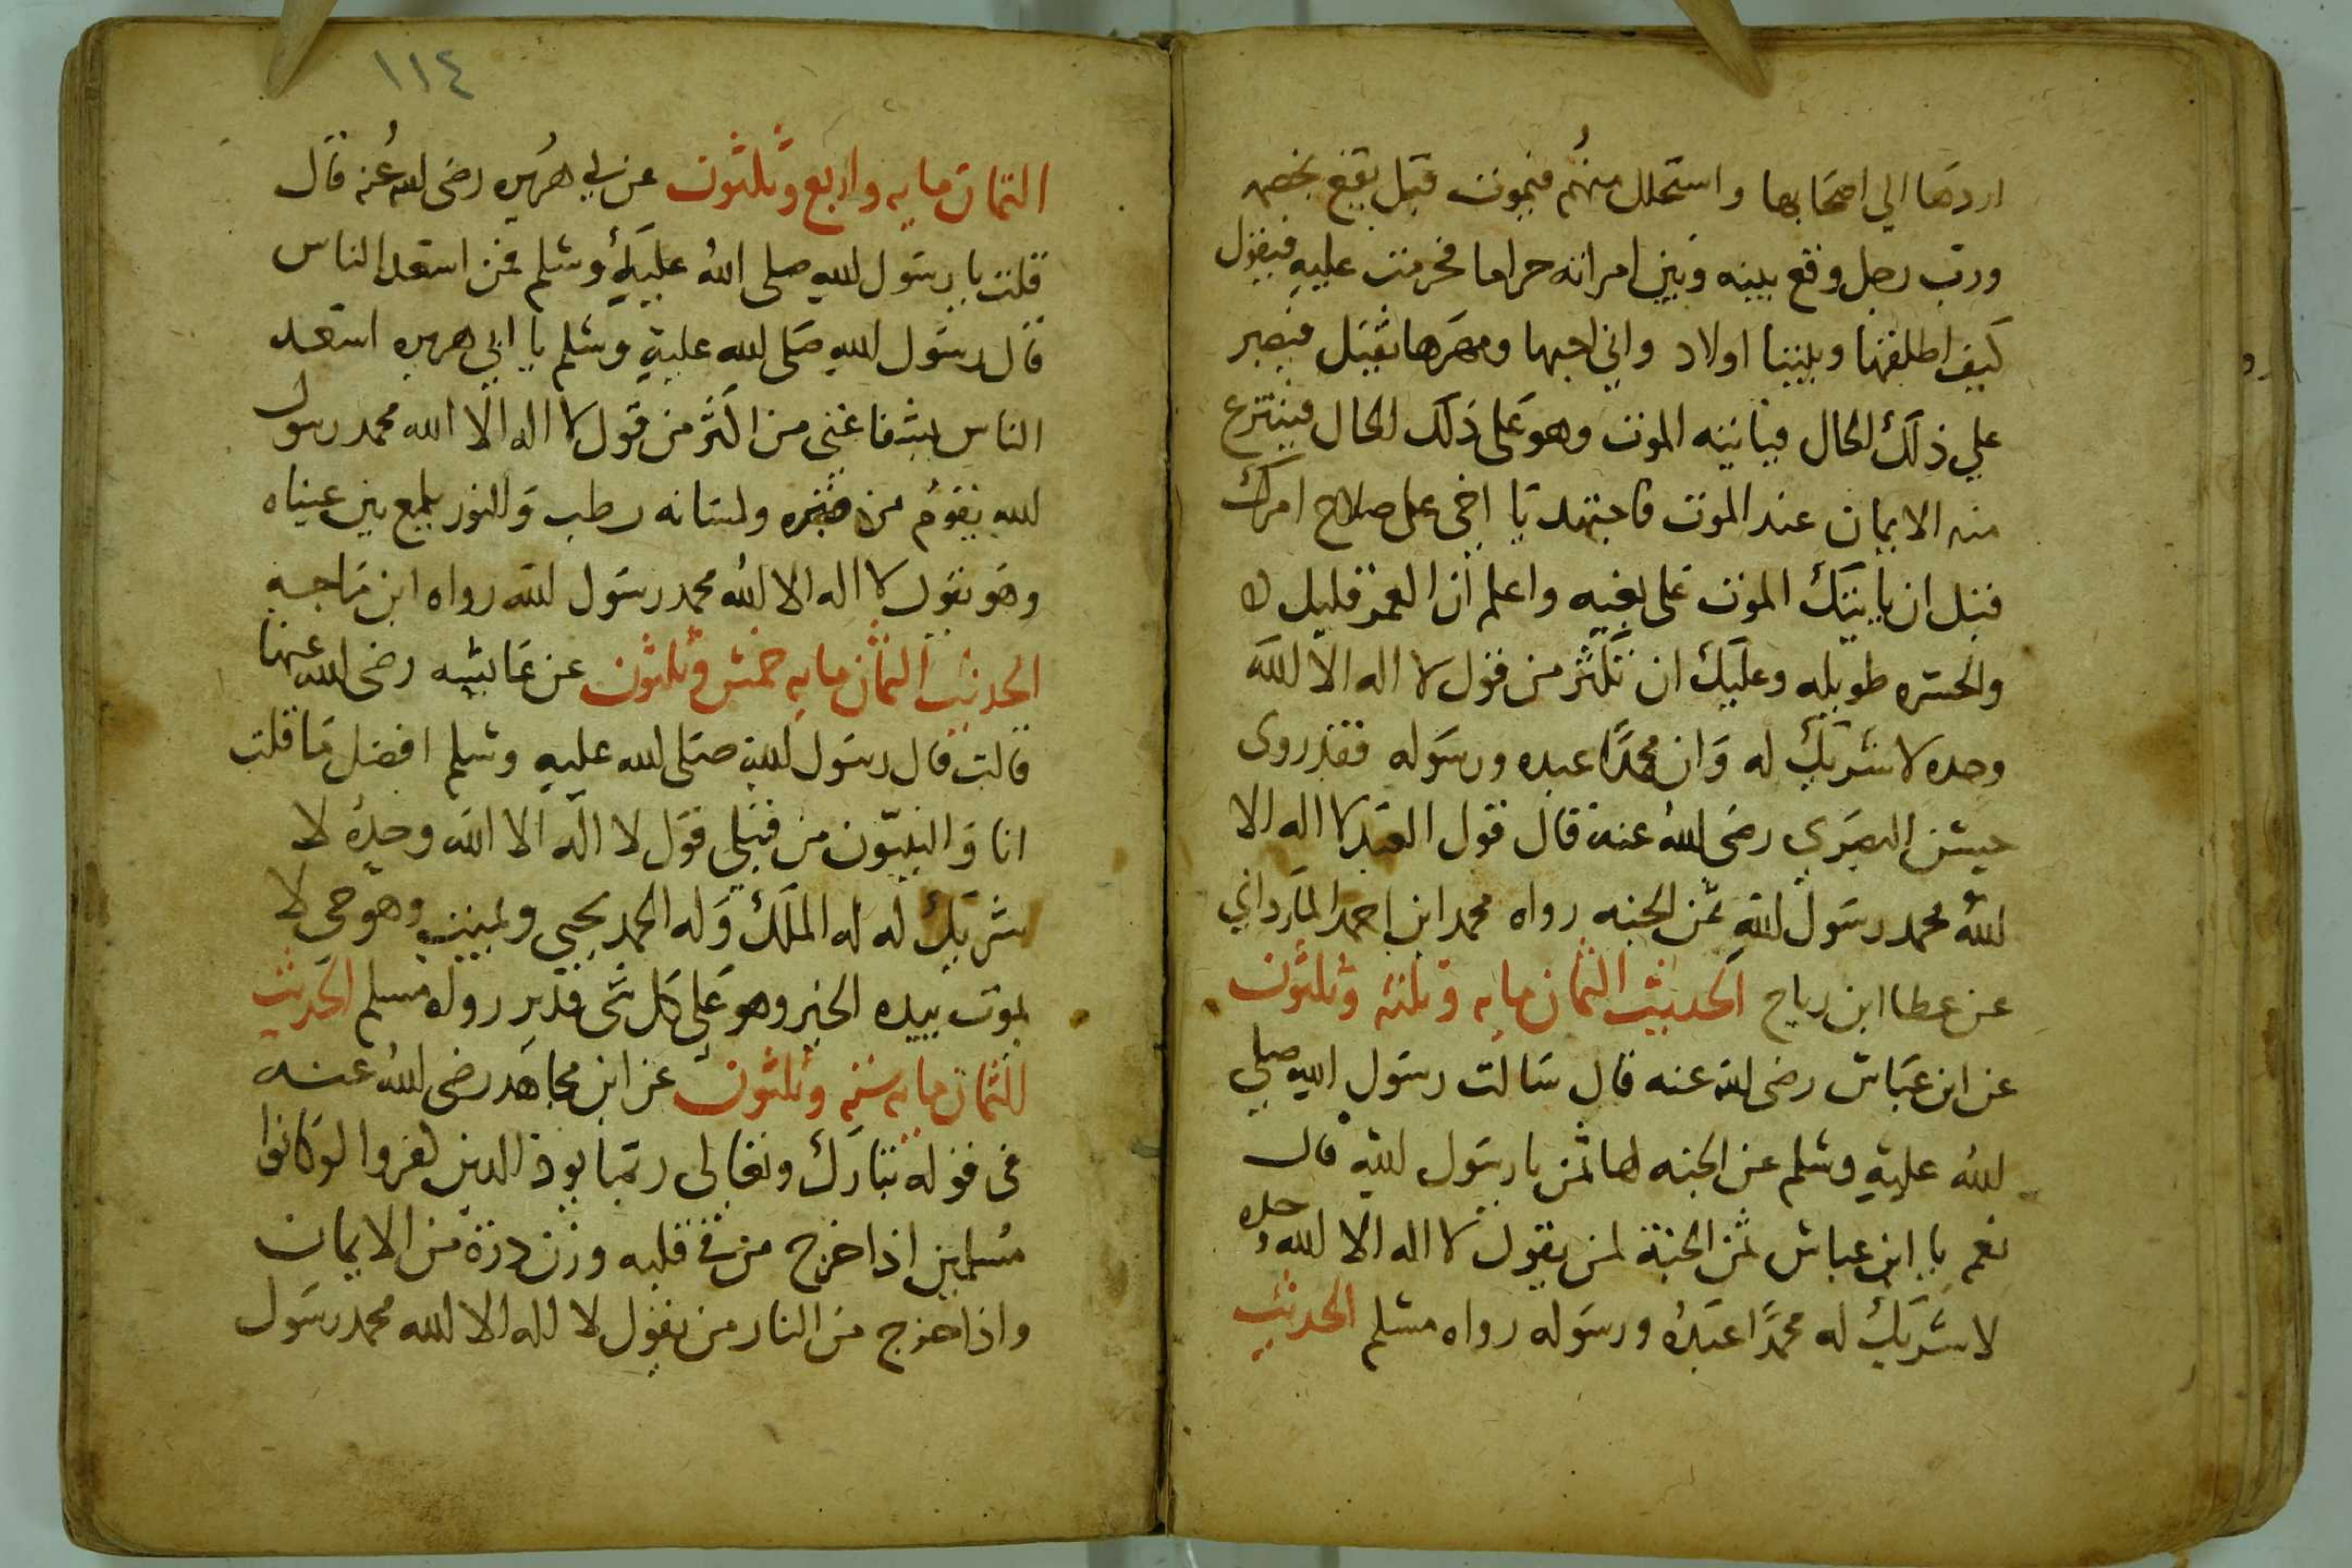 اردها الي اصحابها واستحلل منهم فيموت قبل يقع بخصمه
ورب رجل وقع بينه وبين امراته حراما فحرمت عليه فيقول
كيف اطلقها وبيننا اولاد واني احبها ومهرها ثقيل فيصبر
علي ذلك الحال فياتيه الموت وهو على ذلك الحال فينتزع
منه الايمان عند الموت فاجتهد يا اخي على صلاح امرك
قبل ان ياتيك الموت على بغيه واعلم ان العمر قليل
والحسره طويله وعليك ان تكثر من قول لا اله الا الله
وحده لا شريك له وان محمدًا عبده ورسوله فقد روى
البصري رضى الله عنه قال قول العبد لا اله الا
الله محمد رسول الله ثمن الجنه رواه محمد ابن احمد المارداني
عن عطا ابن رباح الحديث الثمان مايه وثلثه وثلثون
عن ابن عباس رضى الله عنه قال سالت رسول الله صلي
الله عليه وسلم عن الجنه لها ثمن يا رسول الله قال
نعم يا ابن عباس ثمن الجنة لمن يقول لا اله الا الله وحده
لا شريك له محمدًا عبده ورسوله رواه مسلم الحديث
١١٤
الثمان مايه واربع وثلثون عن ابي هريره رضى الله عنه قال
قلت يا رسول الله صلى الله عليه وسلم فمن اسعد الناس
قال رسول الله صلى الله عليه وسلم يا ابي هريره اسعد
الناس بشفاعتي من اكثر من قول لا اله الا الله محمد رسول
الله يقوم من قبره ولسانه رطب والنور يلمع بين عيناه
وهو يقول لا اله الا الله محمد رسول الله رواه ابن ماجه
الحديث الثمان مايه خمس وثلثون عن عايشه رضى الله عنها
قالت قال رسول الله صلى الله عليه وسلم افضل ما قلت
انا والنبيّون من قبلي قول لا اله الا الله وحده لا
شريك له له الملك وله الحمد يحيي ويميت وهو حى لا
يموت بيده الخير وهو على كل شى قدير رواه مسلم الحديث
الثمان مايه سته وثلثون عن ابن مجاهد رضى الله عنه
فى قوله تبارك وتعالى ربما يود الذين كفروا لو كانوا
مسلمين اذا خرج من في قلبه وزن ذرة من الايمان
واذا خرج من النار من يقول لا اله الا الله محمد رسول